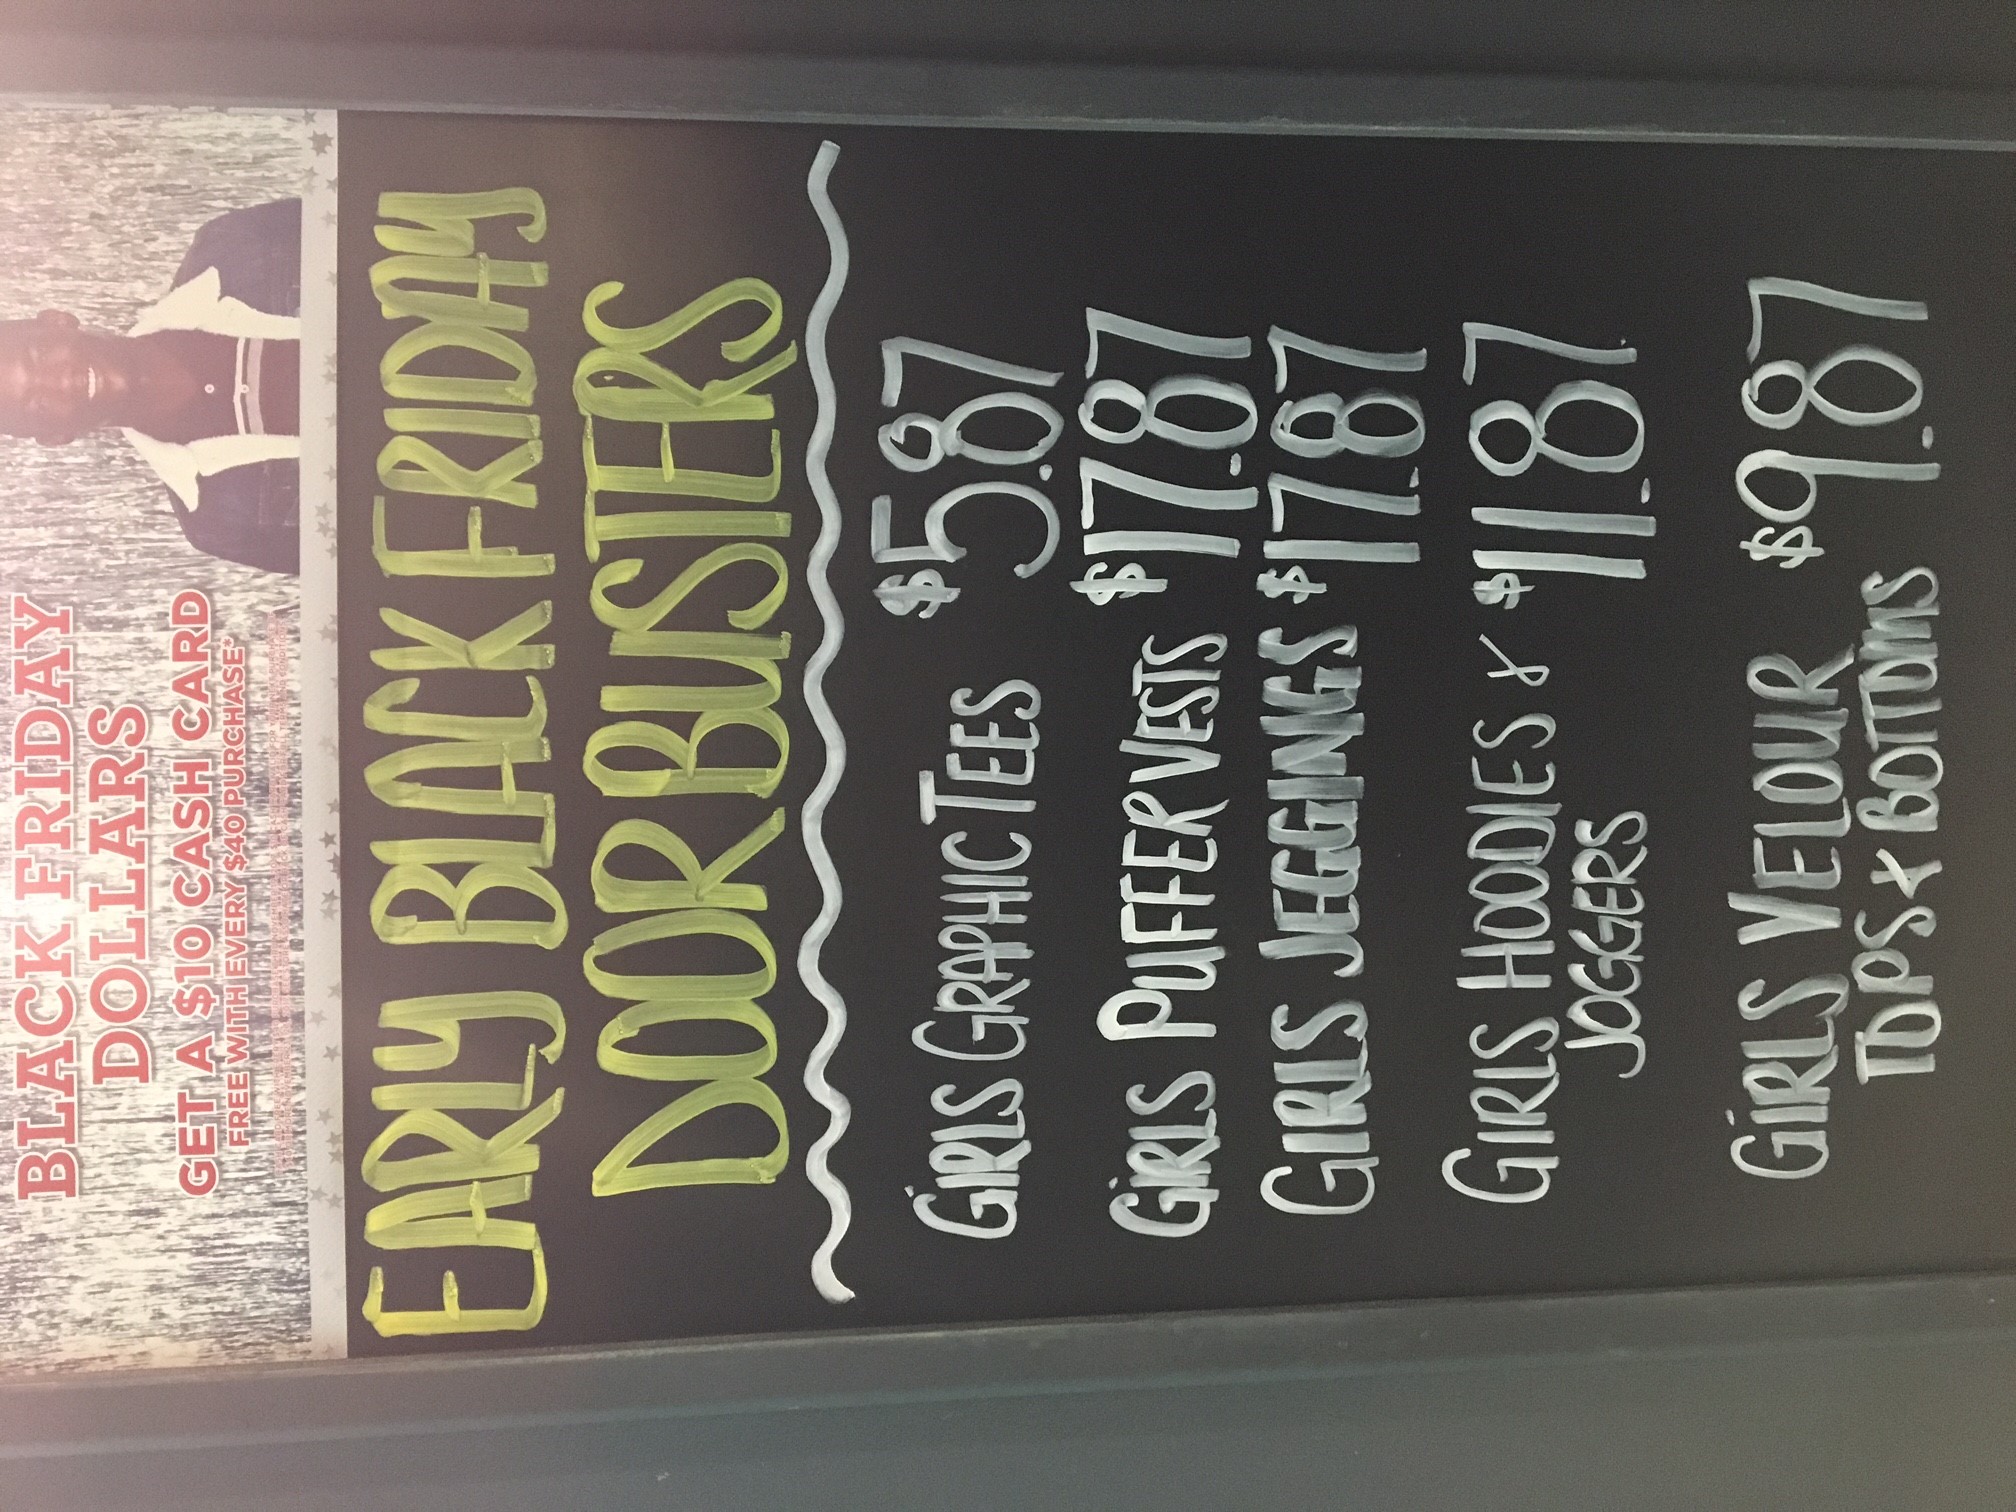 BLACK FRIDAY
DOLLARS
GET A $10 CASH CARD
FREE WITH EVERY $40 PURCHASE*
EARLY BLACK FRIDAY
DOOR BUSTERS
GIRLS GRAPHIC TEES $5.87
GIRLS PUFFER VESTS $17.87
GIRLS JEGGINGS $17.87
GIRLS HOODIES & $11.87
JOGGERS
GIRLS VELOUR $9.87
TOPS & BOTTOMS